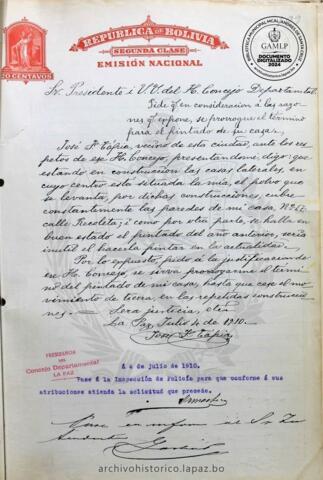 REPÚBLICA DE BOLIVIA
SEGUNDA CLASE
EMISIÓN NACIONAL
20 CENTAVOS
GAMLP
DOCUMENTO
DIGITALIZADO
2024
Sr. Presidente i V.V. del H. Concejo Departamental.
Pide qe en consideración á las razo-
nes qe expone, se prorrogue el término
para el pintado de su casa.
José N. Tápia, vecino de esta ciudad, ante los res-
petos de ese H. Concejo, presentandome, digo: que
estando en construcción las casas laterales, en
cuyo centro esta situada la mia, el polvo que
se levanta, por dichas construcciones, cubre
constantemente las paredes de mi casa, Nº
calle Recoleta; i como por otra parte, se halla en
buen estado el pintado del año anterior, sería
inutil el hacerla pintar en la actualidad.
Por lo expuesto, pido á la justificación de
ese H. Concejo, se sirva prorrogarme el térmi-
no del pintado de mi casa, hasta que cese el mo-
vimiento de tierra, en las repetidas construccio-
nes. Será justicia, etª
La Paz, Julio 4 de 1910.
José N. Tápia
PRESIDENCIA DEL
Concejo Departamental
LA PAZ
á 6 de julio de 1910.
Pase á la Inspección de Policía para que conforme á sus
atribuciones atienda la solicitud que precede.
archivohistorico.lapaz.bo